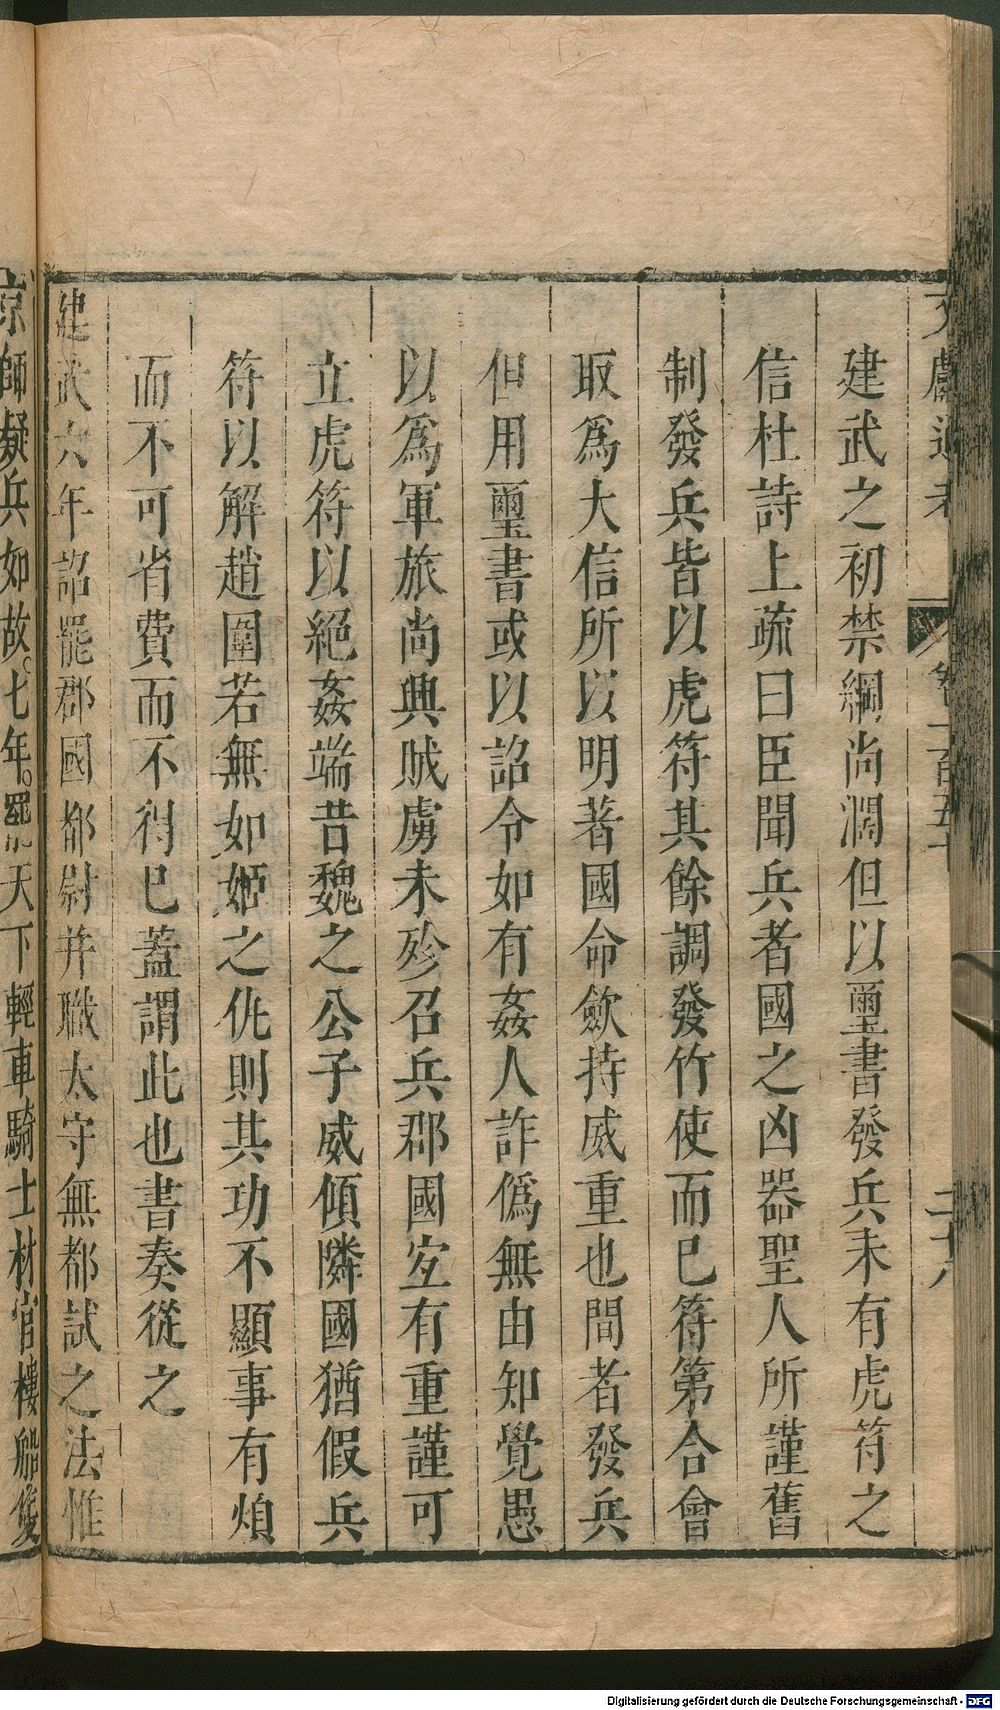 文獻通考 卷一百五十 二十八
建武之初禁綱尚濶但以璽書發兵未有虎符之
信杜詩上疏曰臣聞兵者國之凶器聖人所謹舊
制發兵皆以虎符其餘調發竹使而已符第合會
取爲大信所以明著國命斂持威重也間者發兵
但用璽書或以詔令如有姦人詐僞無由知覺愚
以爲軍旅尚興賊虜未殄召兵郡國宜有重謹可
立虎符以絕姦端昔魏之公子威傾隣國猶假兵
符以解趙圍若無如姬之仇則其功不顯事有煩
而不可省費而不得已蓋謂此也書奏從之
建武六年詔罷郡國都尉并職太守無都試之法惟
京師疑兵如故七年罷天下輕車騎士材官樓船
Digitalisierung gefördert durch die Deutsche Forschungsgemeinschaft - DFG